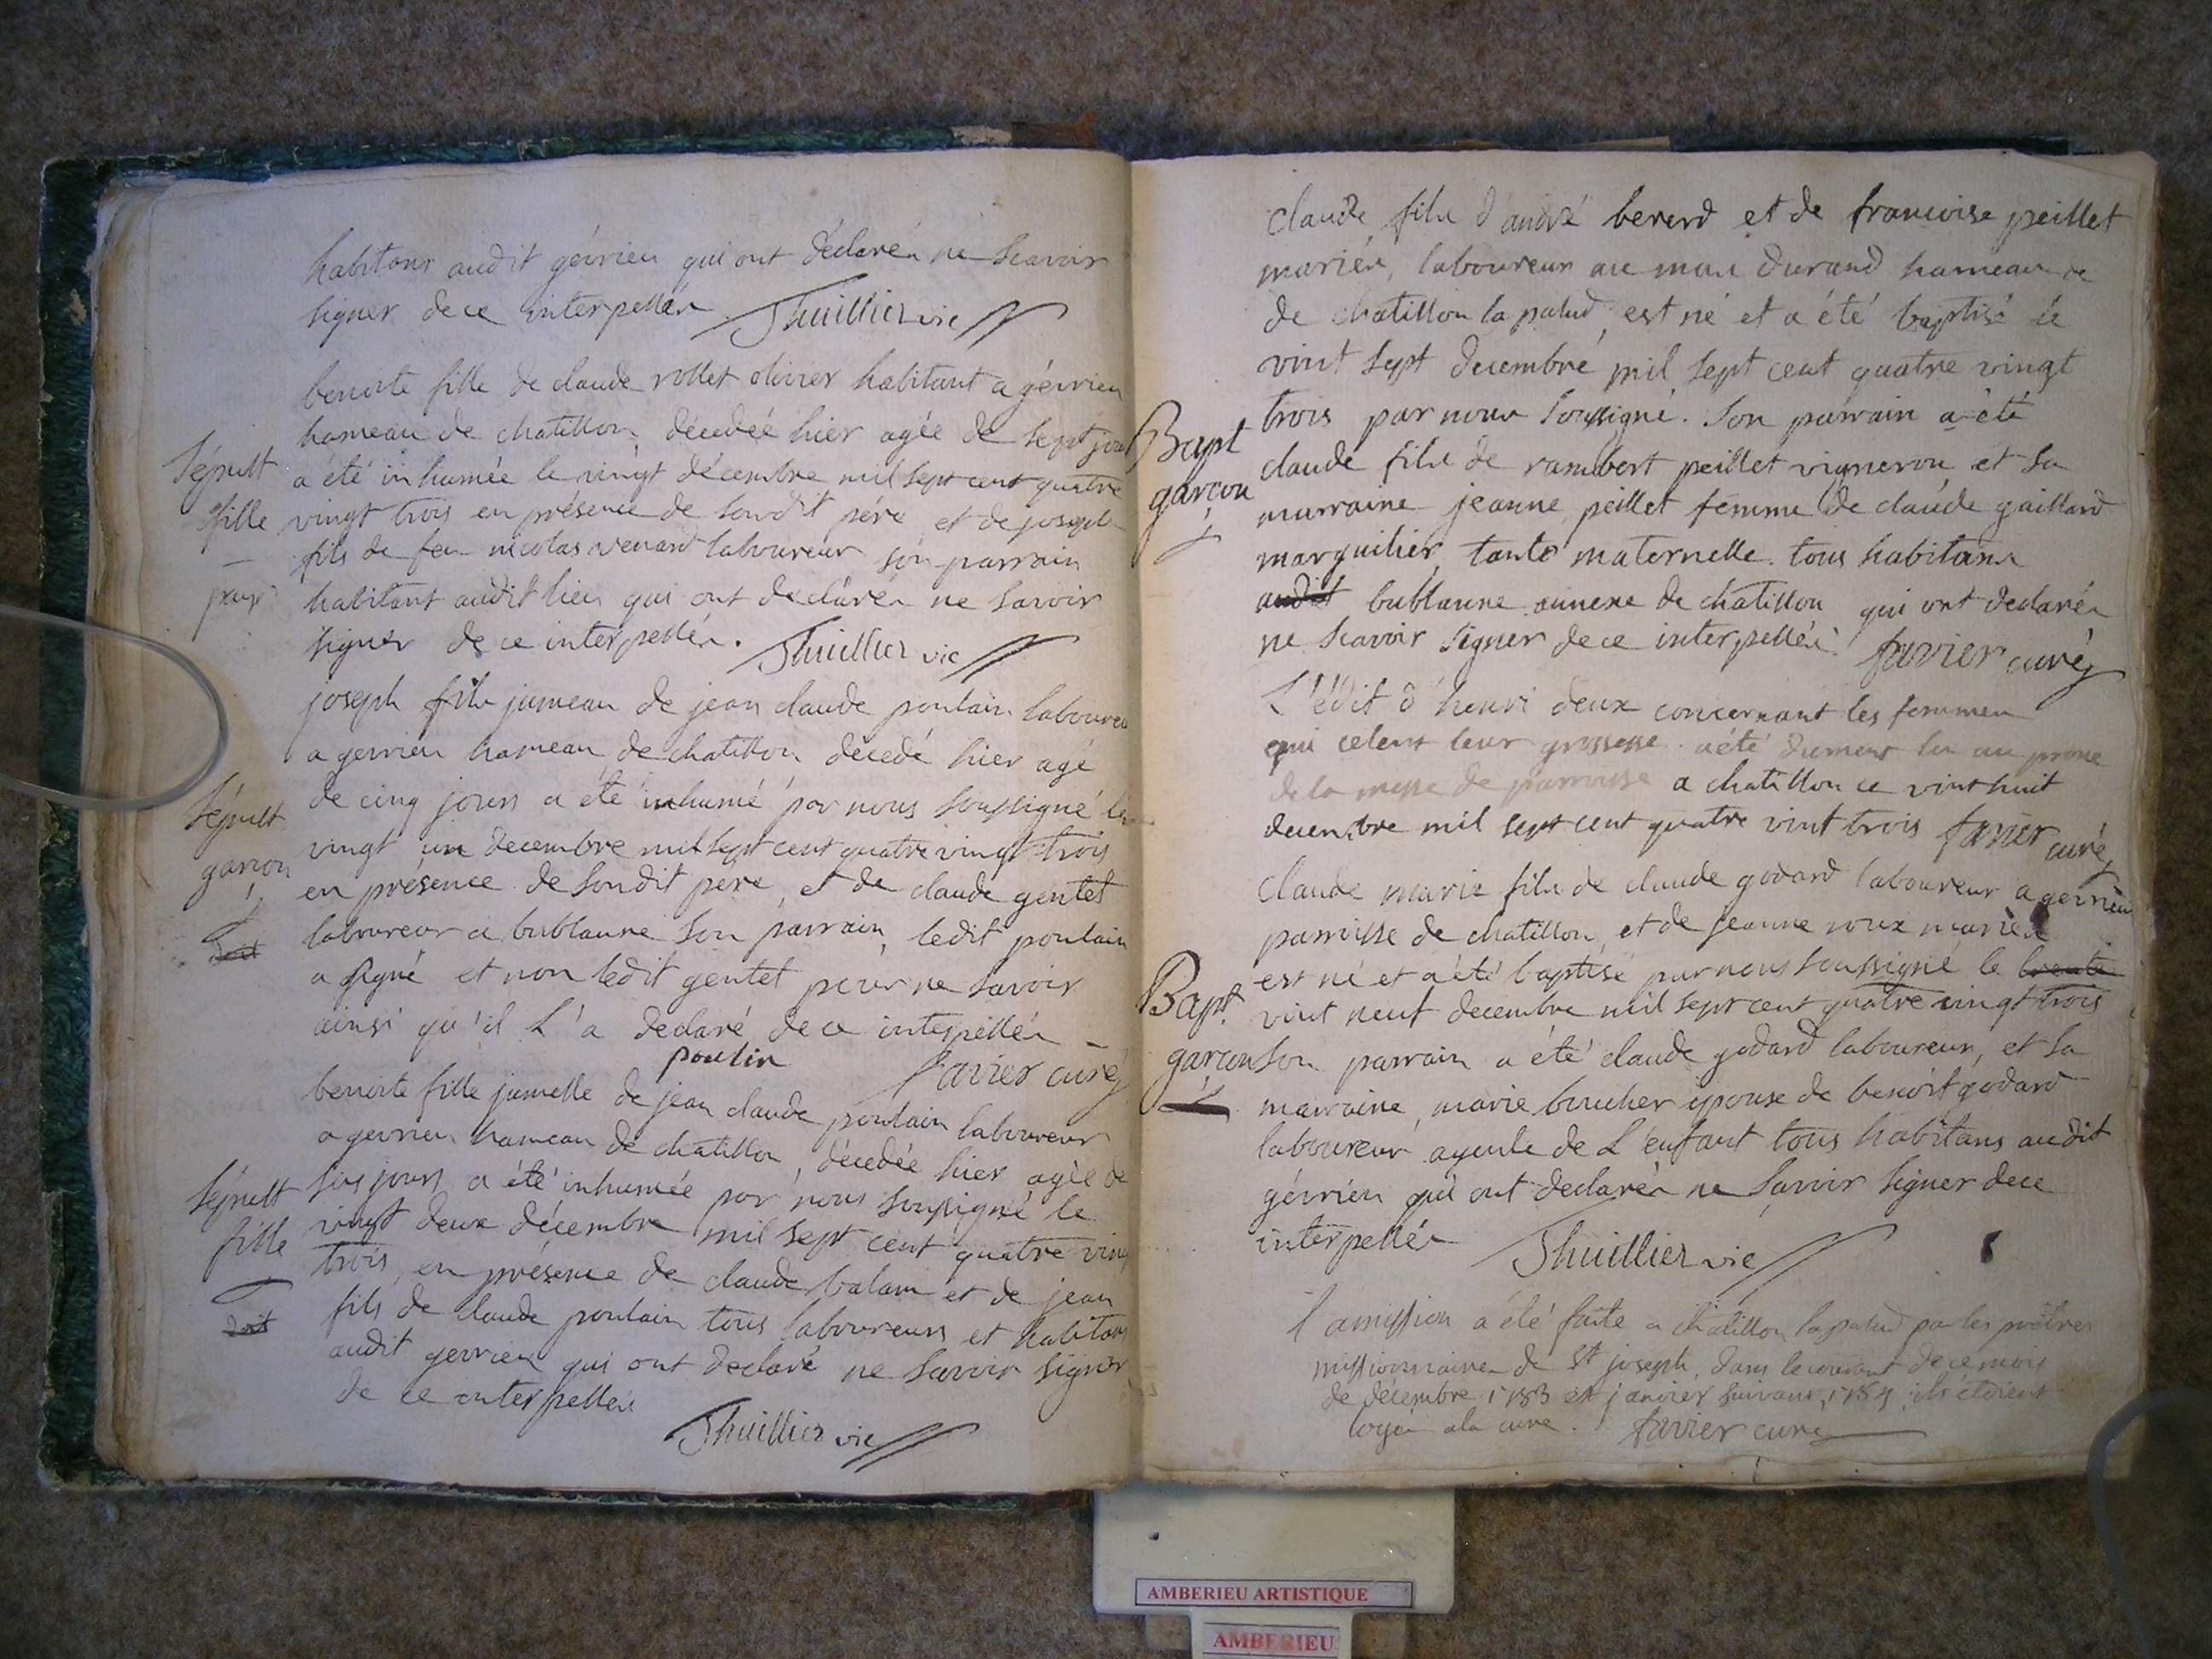 habitans audit gévrieu qui ont déclarés ne scavoir
signer de ce interpellés Thuillier vic
benoite fille de claude rollet olivier habitant a gévrieu
hameau de chatillon décédée hier agée de sept jours
Sépult
fille
a été inhumée le vingt décembre mil sept cent quatre
vingt trois en présence de soudit pére et de joseph
fils de feu nicolas venard laboureur son parrain
habitant audit lieu qui ont déclarés ne savoir
signer de ce interpellés. Thuillier vic
joseph fils jumeau de jean claude poulain laboureur
a gevrieu hameau de chatillon décedé hier agé
Sépult
garcon
de cinq jours a été inhumé par nous soussigné le
vingt un decembre mil sept cent quatre vingt trois
en présence de soudit pere, et de claude gentet
laboureur a bublanne son parrain, ledit poulain
a signé et non ledit gentet pour ne savoir
ainsi qu'il l'a declaré de ce interpellés
poulin favier curé
benoite fille jumelle de jean claude poulain laboureur
a gevrieu hameau de chatillon, décedée hier agée de
Sépult
fille
doit
six jours a été inhumée par nous soussigné le
vingt deux décembre mil sept cent quatre vingt
trois, en présence de claude balam et de jean
fils de claude poulain tous laboureurs et habitans
audit gevrieu qui ont declaré ne savoir signer
de ce interpellés
Thuillier vic
claude fils d'andré bererd et de francoise peillet
mariés, laboureur au mas durand hameau de
de chatillon la palud, est né et a été baptisé le
vint sept decembre mil sept cent quatre vingt
trois par nous soussigné. son parrain a été
Bapt
garcon
claude fils de rambert peillet vigneron et sa
marraine jeanne peillet femme de claude gaillard
marguilier, tante maternelle. tous habitans
audit bublanne annexe de chatillon qui ont declarés
ne scavoir signer de ce interpellés favier curé
L'édit d'henri deux concernant les femmes
qui celent leur grossesse a été dument lu au prone
de la messe de parroisse a chatillon ce vint huit
decembre mil sept cent quatre vint trois favier curé
claude marie fils de claude godard laboureur a gevrieu
parroisse de chatillon, et de jeanne roux mariés
Bapt.
garcon
est né et a été baptisé par nous soussigné le trente
vint neuf decembre mil sept cent quatre vingt trois
son parrain a été claude godard laboureur, et sa
marraine, marie boucher épouse de benoit godard
laboureur, ayeule de l'enfant tous habitans audit
gévrieu qui ont declarés ne savoir signer de ce
interpellés Thuillier vic
la mission a été faite a chatillon la palud par les prêtres
missionnaires de st joseph, dans le courant de ce mois
de décembre 1783 et janvier suivant 1784 ils étoient
logés a la cure. favier curé
AMBERIEU ARTISTIQUE
AMBERIEU